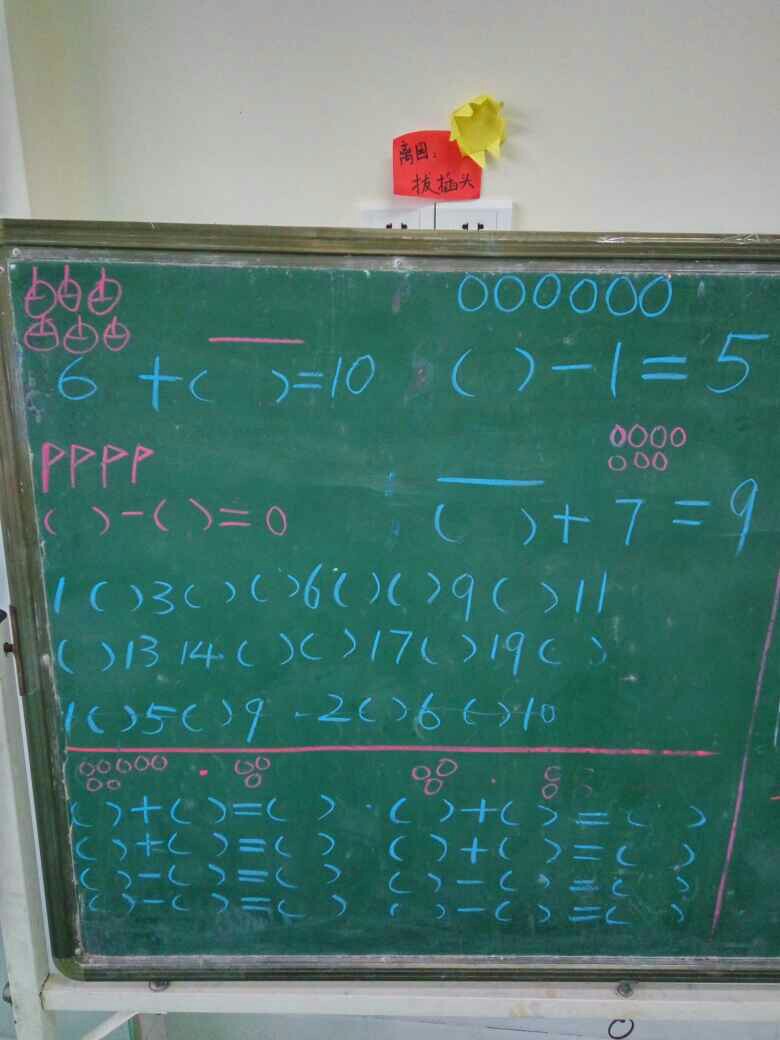 离园：
拔插头
6 + ( ) = 10
( ) - 1 = 5
( ) - ( ) = 0
( ) + 7 = 9
1 ( ) 3 ( ) ( ) 6 ( ) ( ) 9 ( ) 11
( ) 13 14 ( ) ( ) 17 ( ) 19 ( )
1 ( ) 5 ( ) 9 2 ( ) 6 ( ) 10
( ) + ( ) = ( ) ( ) + ( ) = ( )
( ) + ( ) = ( ) ( ) + ( ) = ( )
( ) - ( ) = ( ) ( ) - ( ) = ( )
( ) - ( ) = ( ) ( ) - ( ) = ( )